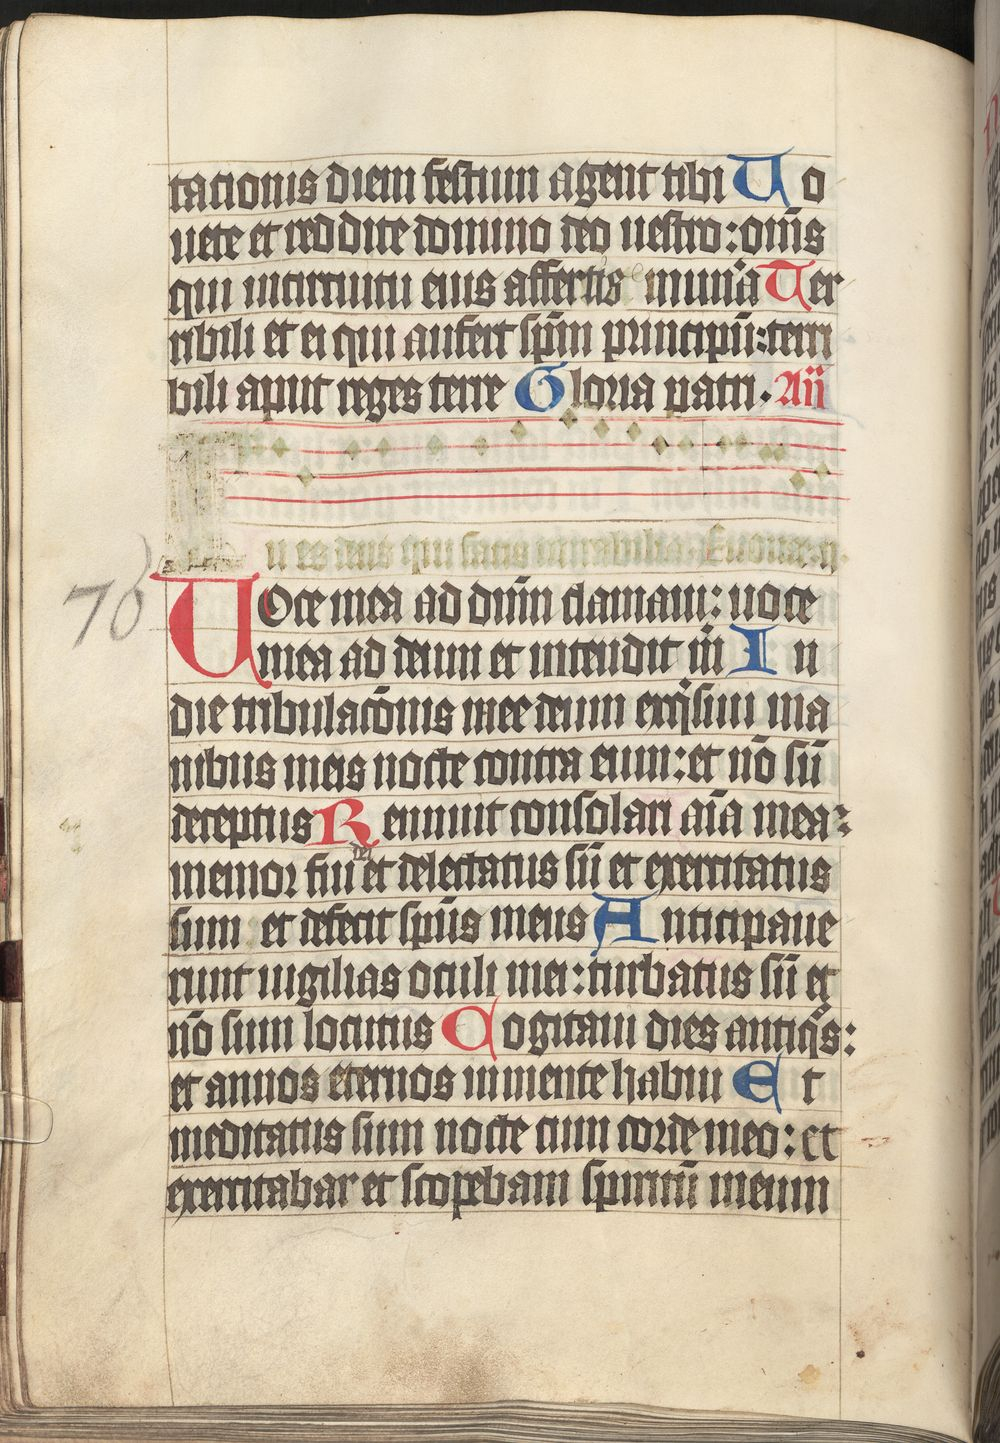 tacionis diem festum agent tibi Uo
uete et reddite domino deo uestro: om̄s
qui incircuitu eius affertis mun̄a Ter
ribili et ei qui aufert sp̄m principū: terri
bili aput reges terre Gloria patri. An̄
Tu es deus qui facis mirabilia. Euouae. p̄.
76
Uoce mea ad dn̄m clamaui: uoce
mea ad deum et intendit m̄ In
die tribulac̄onis mee deum exq̄siui ma
nibus meis nocte contra eum: et nō sū
deceptus Rennuit consolari aīa mea:
memor fui dei et delectatus sū et exercitatus
sum et defecit sp̄us meus Anticipaue
runt uigilias oculi mei: turbatus sū et
nō sum locutus Cogitaui dies antiq̄s:
et annos eternos inmente habui Et
meditatus sum nocte cum corde meo: et
exercitabar et scopebam spiritū meum